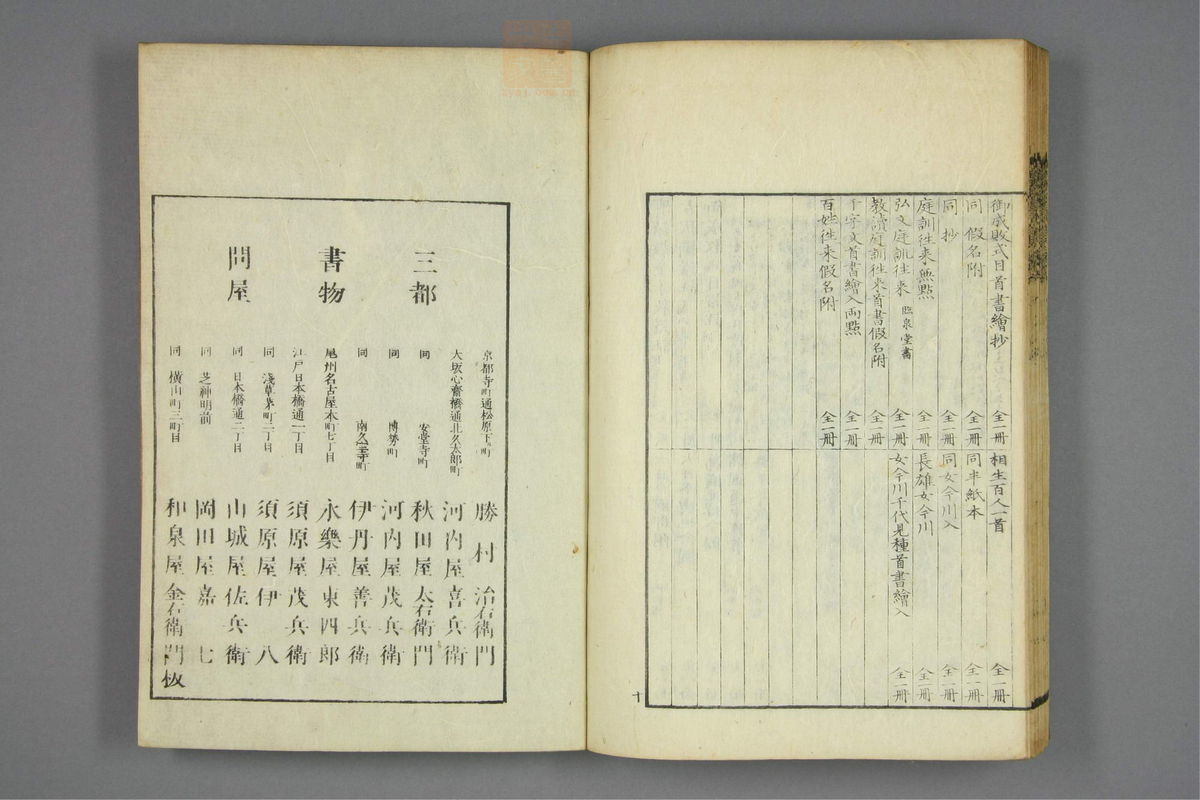 御成敗式目首書繪抄 全一冊
同 假名附 全一冊
同 抄 全一冊
庭訓往来無點 全一冊
弘文庭訓往来 臨泉堂書 全一冊
教讀庭訓往来首書假名附 全一冊
千字文首書繪入両點 全一冊
百姓往来假名附 全一冊
相生百人一首 全一冊
同半紙本 全一冊
同女今川入 全一冊
長雄女今川 全一冊
女今川千代見種首書繪入 全一冊
十
三都
書物
問屋
京都寺町通松原下町 勝村治右衛門
大坂心齋橋通北久太郎町 河内屋喜兵衛
同 安堂寺町 秋田屋太右衛門
同 博勞町 河内屋茂兵衛
同 南久宝寺町 伊丹屋善兵衛
尾州名古屋本町七丁目 永樂屋東四郎
江戸日本橋通一丁目 須原屋茂兵衛
同 淺草茅町二丁目 須原屋伊八
同 日本橋通二丁目 山城屋佐兵衛
同 芝神明前 岡田屋嘉七
同 横山町三町目 和泉屋金右衛門板